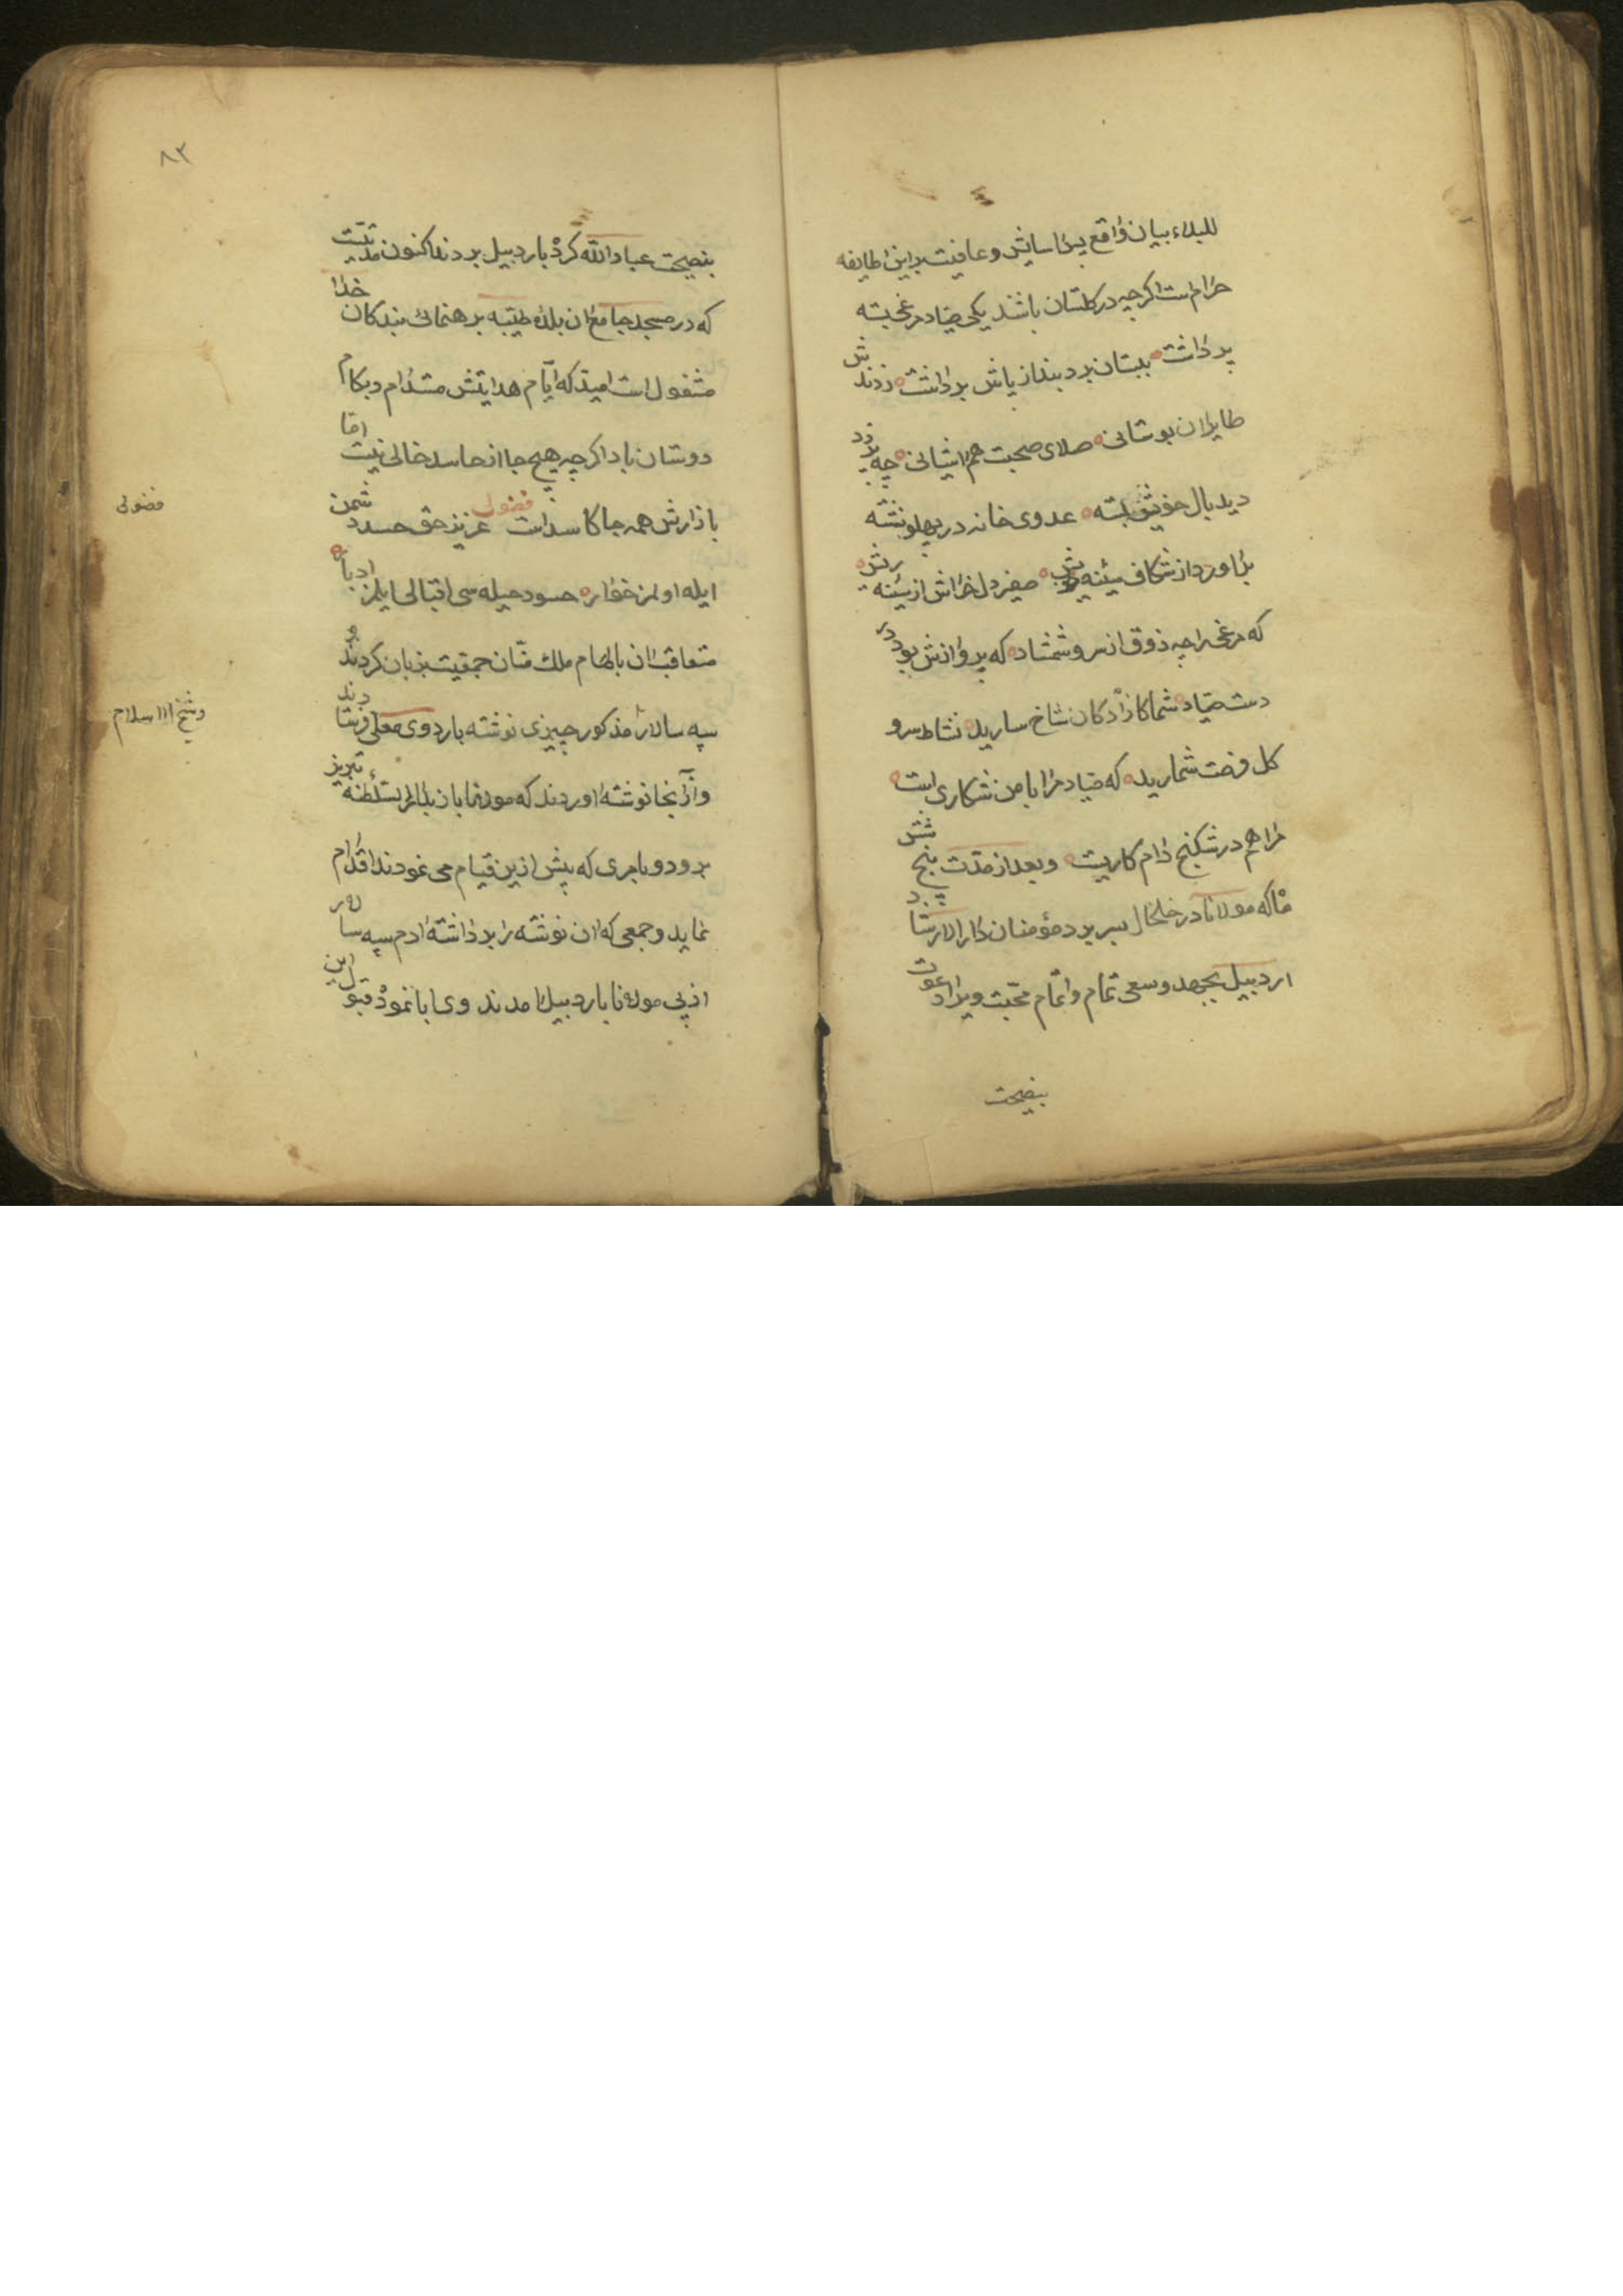 للبلاء بیان واقع پس اسایش و عافیت براین طایفه
حرام است اکرچه در کلستان باشند یکی صیاد مرغی بسته
پر داشت ببستان برد بند از پاش برداشت زدندش
طایران بوستانی صلای صحبت هم اشیانی چه پر زد
دید بال خویش بسته عدوی خانه در پهلو نشسته
براورد از شکاف سینهٔ ریش صفیر دل خراش از سینهٔ ریش
که مرغی را چه ذوق از سرو شمشاد که پروازش بود در
دست صیاد شما کازادکان شاخ سارید نشاط سرو
کل فرصت شمارید که صیاد مرا با من شکاری است
مرا هم در شکنج دام کاریست و بعد از مدت پنج شش
ماه که مولانا در خلخال بسر برد مؤمنان دار الارشاد
اردبیل بجهد و سعی تمام و اتمام محبت ویرا دعوت
بنصیحت
۸۳
بنصیحت عباد الله کرد باردبیل بردند اکنون مدتیست
که در مسجد جامع ان بلدهٔ طیبه برهنمائی بندکان خدا
مشغول است امید که ایام هدایتش مستدام و بکام
دوستان باد اکرچه هیچ جا از حاسد خالی نیست اما
بازارش همه جا کاسد است فضولی عزیز حق حسد دشمن
ایله اولمز خوار حسود حیله سی اقبالی ایلمز ادبار
متعاقب ان بالهام ملک منان جمعیت بزبان کردند
سپه سالار مذکور چیزی نوشته باردوی معلی فرستادند
و از انجا نوشته اوردند که مولانا باز بدار السلطنهٔ تبریز
برود و بامری که پیش ازین قیام می نمودند اقدام
نماید و جمعی که ان نوشته را برداشته ادم سپه سالار
از پی مولانا باردبیل امدند وی ابا نمود قبول این
فضولی
وشیخ الاسلام